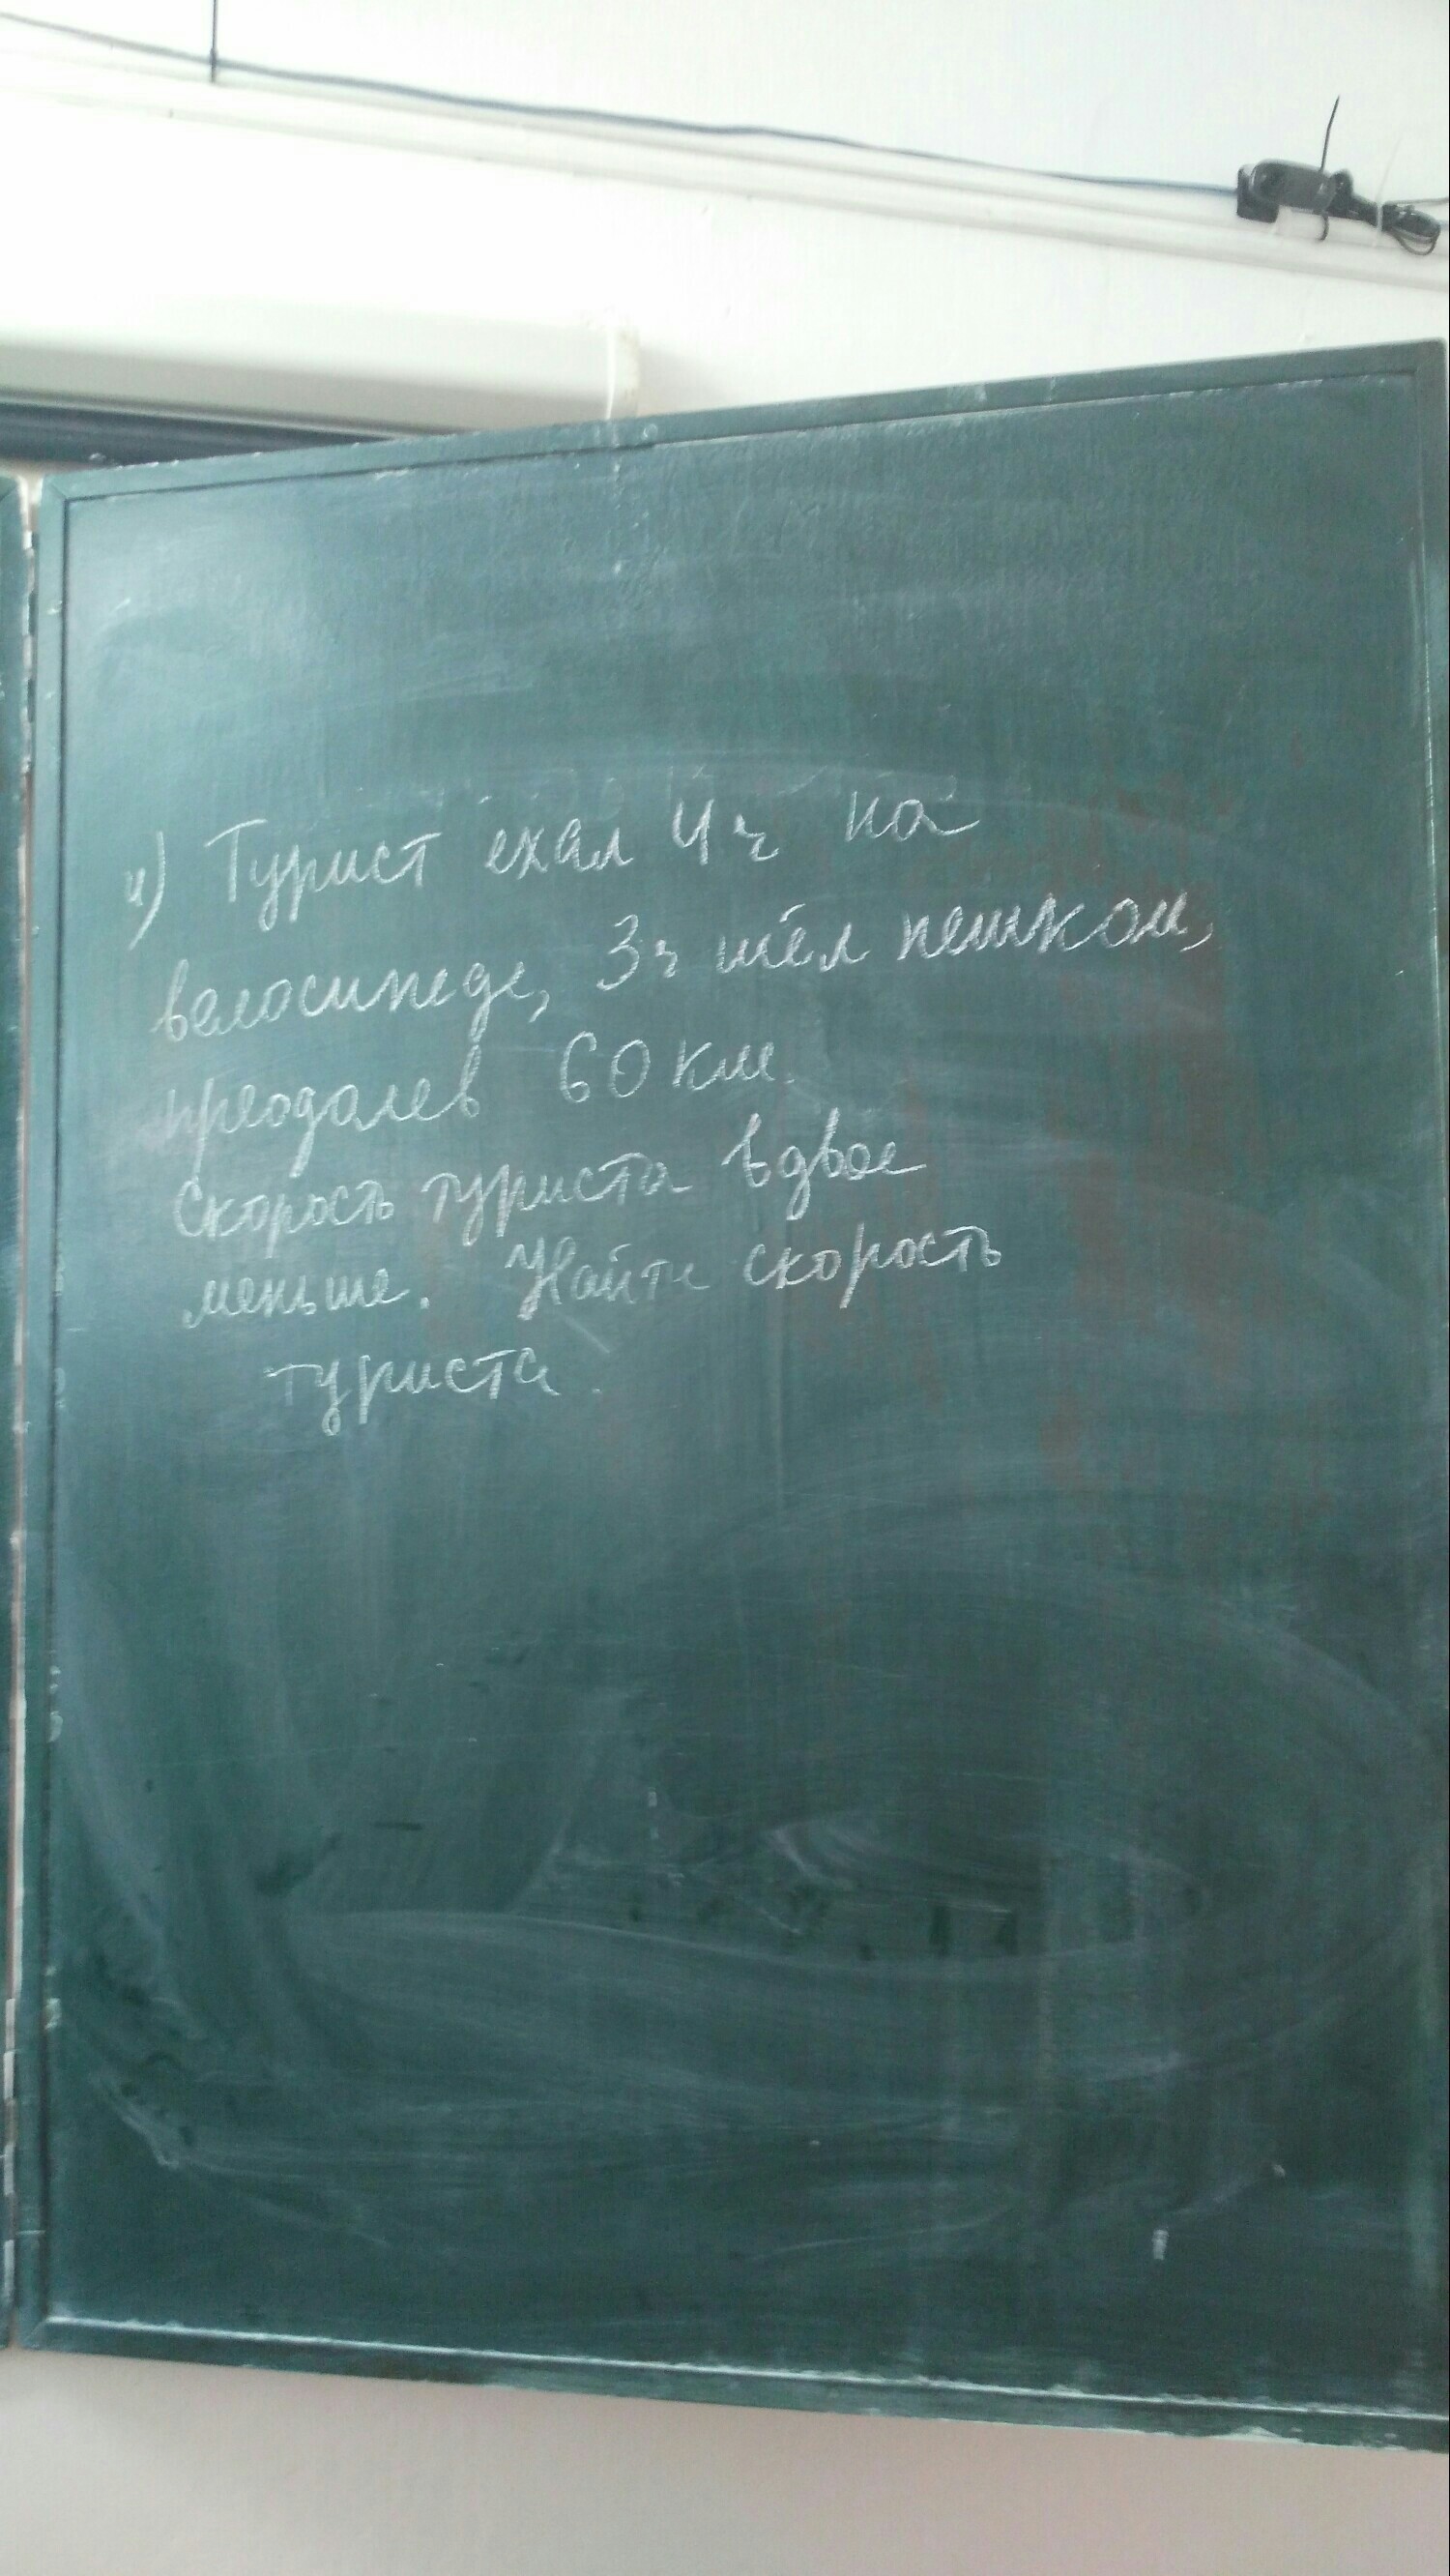 4) Турист ехал 4 ч на
велосипеде, 3 ч шёл пешком,
преодолев 60 км.
Скорость туриста вдвое
меньше. Найти скорость
туриста.